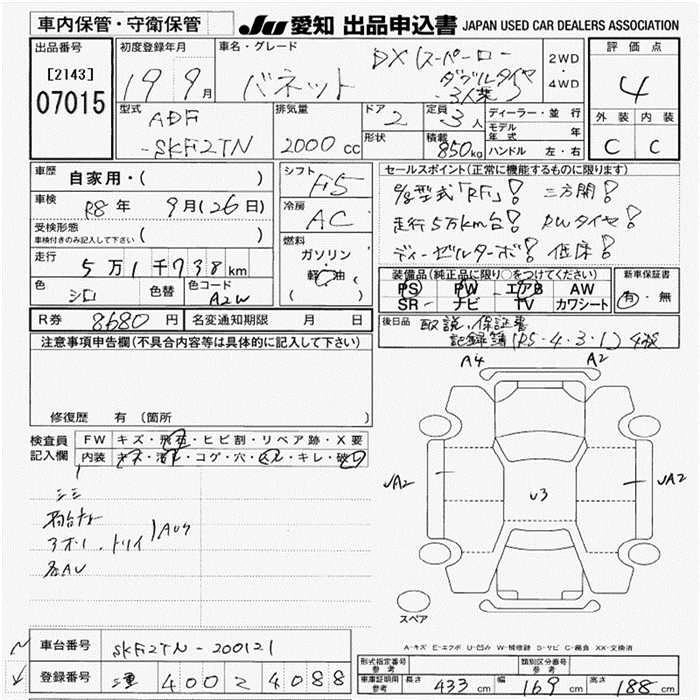 車内保管・守衛保管 JU 愛知 出品申込書 JAPAN USED CAR DEALERS ASSOCIATION
出品番号 初度登録年月 車名・グレード 評価点
[2143] 19 9月 バネット DX(スーパーロー 2WD・4WD 4
07015 ダブルタイヤ
型式 排気量 ドア 定員 ディーラー・並行 外装 内装
ADF 2000cc 2 3人 モデル年式 年 C C
-SKF2TN 形状 積載 850kg ハンドル 左・右
車歴 自家用・( ) シフト F5 セールスポイント(正常に機能するものに限ります)
車検 R8年 9月(26日) 冷房 AC 型式「RF」! 三方開!
受検形態 走行5万km台! Rwタイヤ!
車検付きのみ記入して下さい ( ) 燃料 ディーゼルターボ! 低床!
走行 5万1千738km ガソリン 装備品(純正品に限り○をつけてください) 新車保証書
色 シロ 色替 色コード A2W 軽油 PS PW エアB AW 有・無
( ) SR ナビ TV カワシート
R券 8680円 名変通知期限 月 日 後日品 取説、保証書
注意事項申告欄(不具合内容等は具体的に記入して下さい) 記録簿(R5・4・3・1)4枚
修復歴 有(箇所
A4 A2
検査員記入欄 FW キズ・飛石・ヒビ割・リペア跡・X要
内装 キズ・汚レ・コゲ・穴・スレ・キレ・破レ
シミ
AUサ
各AU
UA2 U3 UA2
スペア
A-キズ E-エクボ U-凹み W-補修跡 S-サビ C-腐食 XX-交換済
車台番号 SKF2TN-200121
登録番号 三重 400 と 4088
形式指定番号 参考 類別区分番号 参考
車庫証明用参考 長さ 433cm 幅 169cm 高さ 188cm